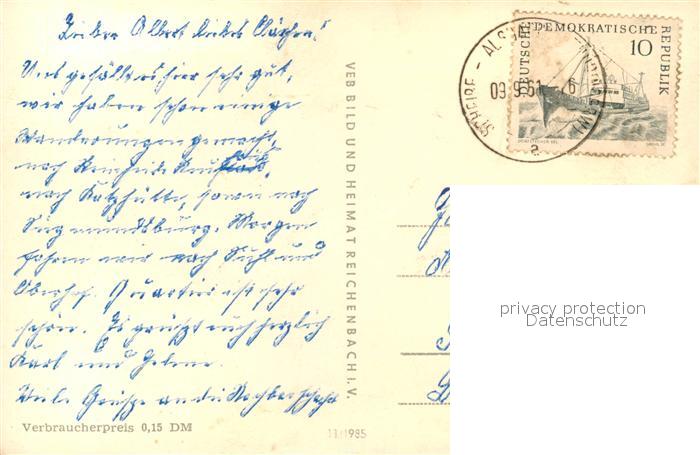 Lieber Albert liebes Clärchen!
Uns gefällt es hier sehr gut,
wir haben schon einige
Wanderungen gemacht,
nach
nach Katzhütte, sowie nach
Siegmundsburg. Morgen
fahren wir nach Suhl und
Oberhof. Quartier ist sehr
schön. Es grüßt euch herzlich
Karl und Helene
Viele Grüße an die Nachbarschaft
Verbraucherpreis 0,15 DM
VEB BILD UND HEIMAT REICHENBACH I. V.
11/1985
DEUTSCHE DEMOKRATISCHE REPUBLIK
10
SCHEIBE - ALSBACH
09.9.61 - 6
a
privacy protection
Datenschutz